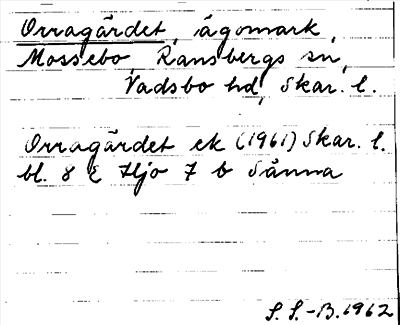 Orragärdet, ägomark,
Mossebo Ransbergs sn,
Vadsbo hd, Skar. l.
Orragärdet ek (1961) Skar. l.
bl. 8 E Hjo 7 b Sånna
S. S.-B. 1962